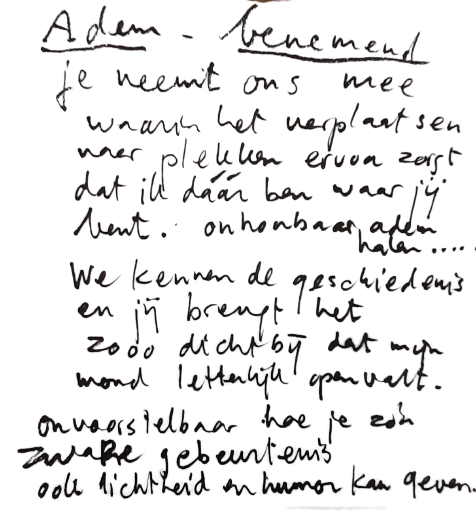 Adem - benemend
je neemt ons mee
waarin het verplaatsen
naar plekken ervoor zorgt
dat ik dáár ben waar jij
bent. onhoubaar adem
halen.....
We kennen de geschiedenis
en jij brengt het
zooo dichtbij dat mijn
mond letterlijk openvalt.
onvoorstelbaar hoe je zo'n
zware gebeurtenis
ook lichtheid en humor kan geven.